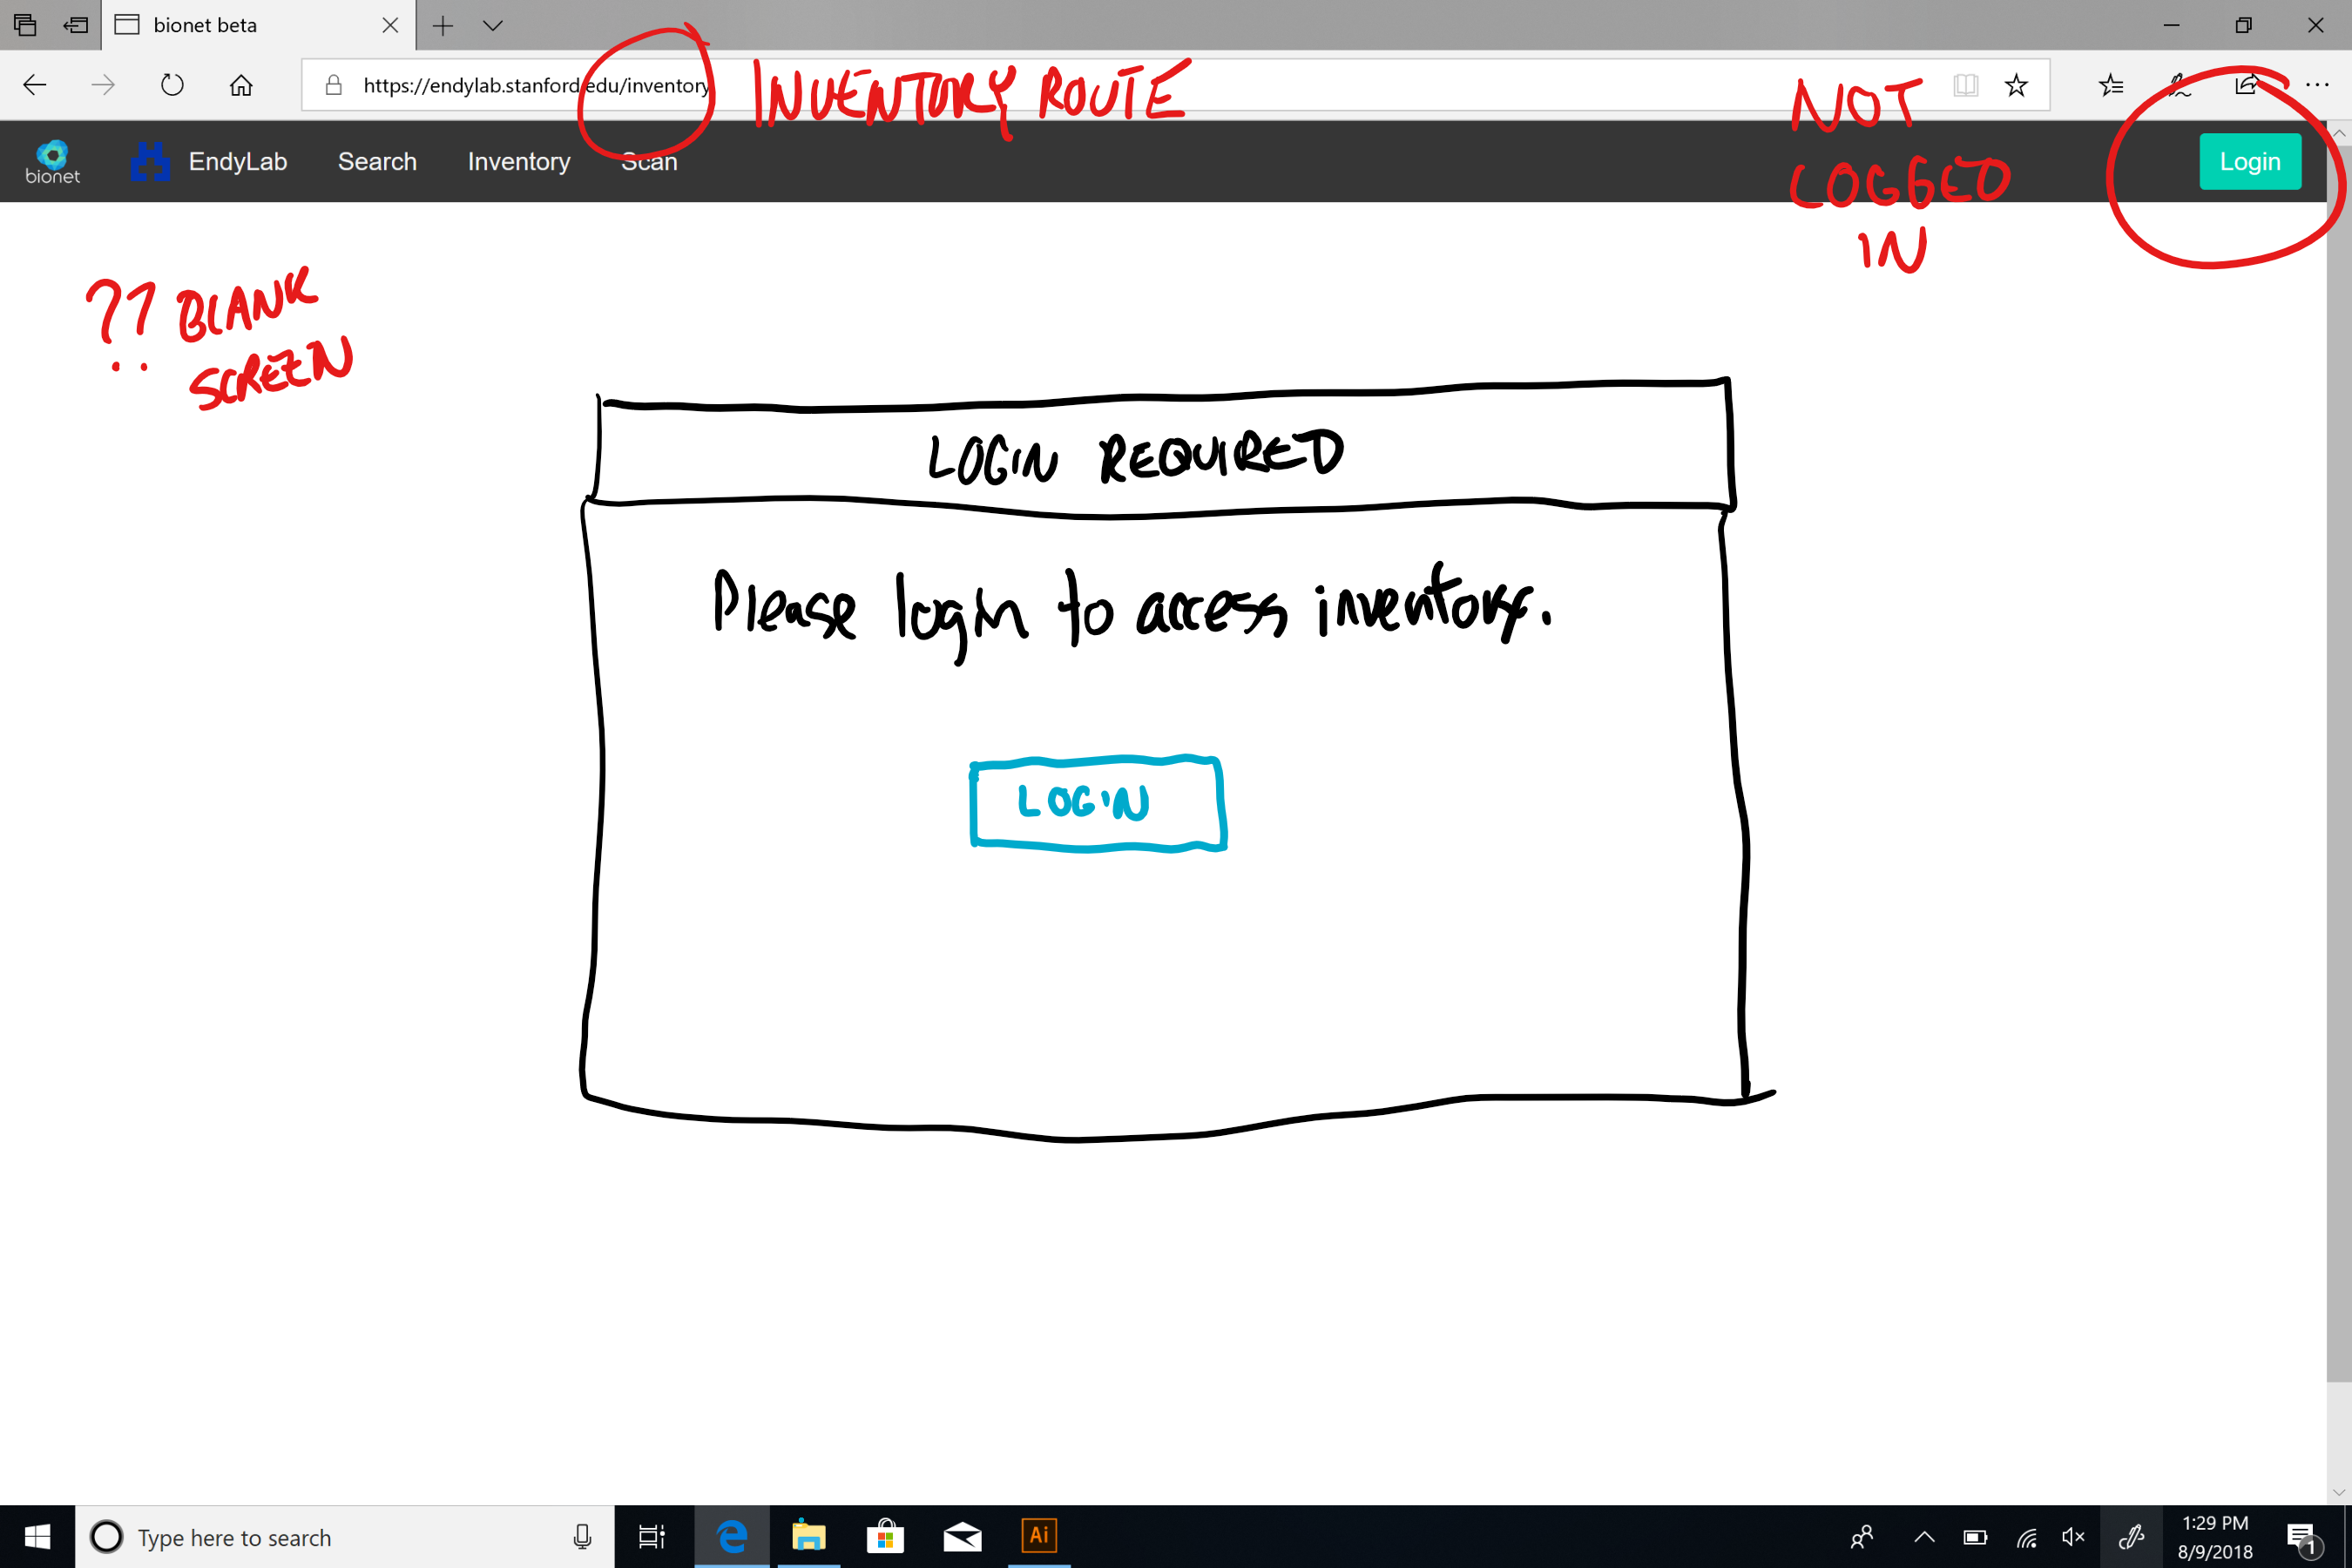 bionet beta
https://endylab.stanford.edu/inventory
INVENTORY ROUTE
NOT
LOGGED
IN
bionet
EndyLab
Search
Inventory
Scan
Login
?? BLANK
SCREEN
LOGIN REQUIRED
Please login to access inventory.
LOGIN
Type here to search
Ai
1:29 PM
8/9/2018
1